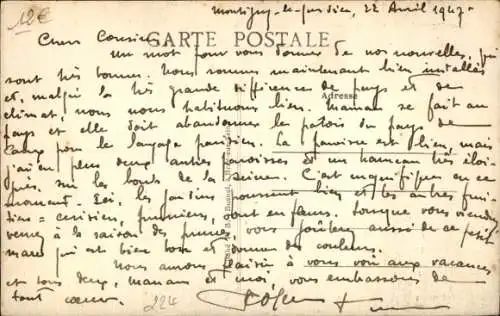 12€
Montigny-le-Gardier, 22 Avril 1947.
Chers Cousins
CARTE POSTALE
un mot pour vous donner de nos nouvelles, qui
sont très bonnes. Nous sommes maintenant bien installés
et, malgré la très grande différence de pays et de
Adresse
climat, nous nous habituons bien. Maman se fait au
pays et elle doit abandonner le patois du pays de
pour le langage parisien. La paroisse est bien, mais
j'ai en plus deux autres paroisses et un hameau très éloi-
gnés, sur les bords de la Seine. C'est magnifique en ce
moment. Ici, les jardins poussent bien et les arbres frui-
tiers = cerisiers, pruniers, sont en fleurs. Lorsque vous viendrez
venez à la saison des prunes, vous jouirez aussi de ce petit
marc qui est bien bon et donne des couleurs.
Nous aurons plaisir à vous voir aux vacances
et tous deux, maman et moi, vous embrassons de
tout cœur.
224